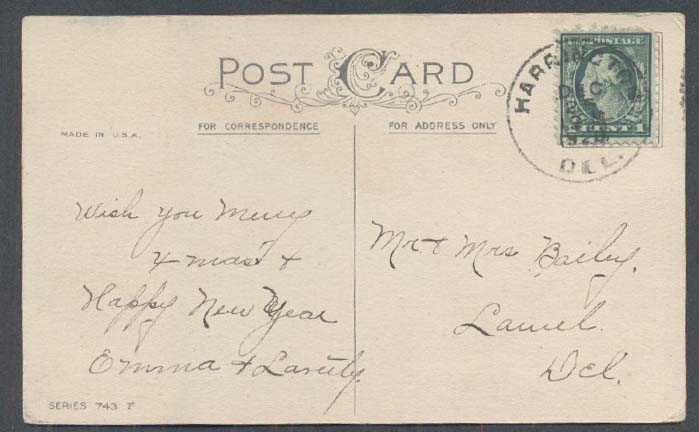 POST CARD
FOR CORRESPONDENCE
FOR ADDRESS ONLY
MADE IN U.S.A.
HARRINGTON
DEC
1920
DEL.
CENT 1
Wish you Merry
Xmas &
Happy New Year
Emma &
Mr & Mrs Bailey.
Laurel.
Del.
SERIES 743 F